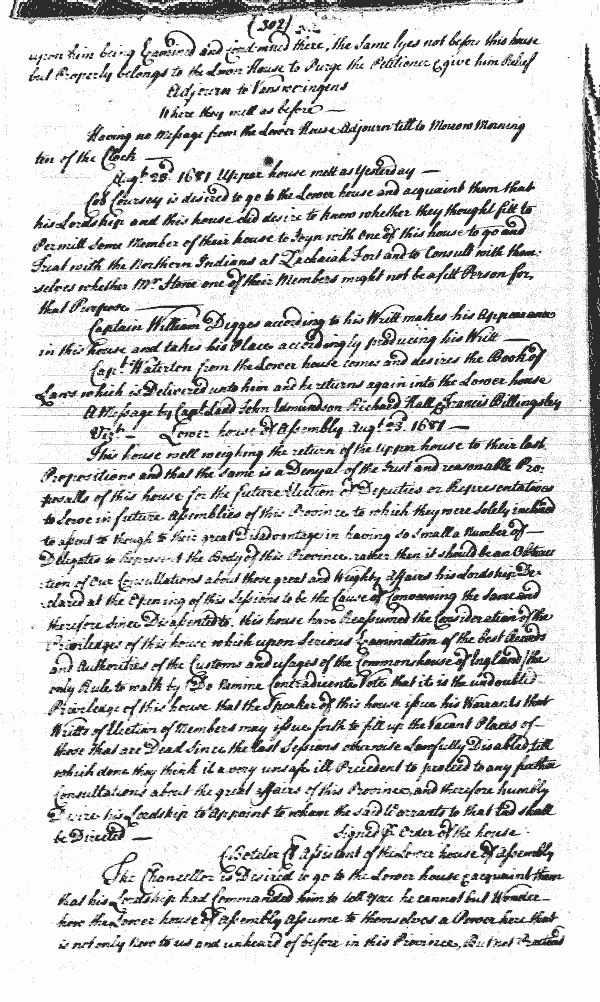 (302)
upon him being Examined and Condemned there, the same lyes not before this house
but Properly belongs to the Lower House to Purge the Petitioner & give him Relief
Adjourn to Vansweringens
Where they mett as before —
Having no Message from the Lower House Adjourn till to Morrow Morning
ten of the Clock —
Augt. 23d. 1681 Upper house mett as Yesterday —
Coll Coursey is desired to go to the Lower house and acquaint them that
his Lordship and this house did desire to know whether they thought fitt to
Permitt Some Member of their house to Joyn with one of this house to go and
Treat with the Northern Indians at Zachaiah Fort and to Consult with them
selves whether Mr. Stone one of their Members might not be a fitt Person for
that Purpose —
Captain William Digges according to his Writt makes his Appearance
in this house and takes his Place accordingly producing his Writt —
Capt. Waterton from the Lower house comes and desires the Book of
Laws which is Delivered unto him and he returns again into the Lower house
A Message by Capt. Ladd John Edmundson Richard Hall & Francis Billingsley
Vizt. — Lower house of Assembly Augt. 23. 1681 —
This house well weighing the return of the upper house to their last
Propositions and that the same is a Denyal of the Just and reasonable Pro-
posalls of this house for the future Election of Deputies or Representatives
to Serve in future Assemblies of this Province to which they were Solely inclined
to assent to though to their great Disadvantage in having so small a Number of —
Delegates to Represent the Body of this Province rather then it should be an Obstruc
tion of Our Consultations about those great and Weighty Affairs his Lordship De-
clared at the Opening of this Sessions to be the Cause of Convening the same and
therefore Since Disassented to, this house have Reassumed the Consideration of the
Priviledges of this house which upon Serious Examination of the best Records
and Authorities of the Customs and usages of the Commons house of England (the
only Rule to walk by) Do Nemine Contradicente Vote that it is the undoubted
Priviledge of this house that the Speaker of this house issue his Warrants that
Writts of Election of Members may issue forth to fill up the Vacant Places of —
those that are Dead Since the last Sessions otherwise Lawfully Disabled till
which done they think it a very unsafe ill Precedent to proceed to any further
Consultations about the great affairs of this Province, and therefore humbly
Desire his Lordship to Appoint to whom the said Warrants to that End shall
be Directed — Signed p. Order of the house
C. Boteler Cl Assistant of the Lower house of Assembly
The Chancellor is Desired to go to the Lower house & acquaint them
that his Lordship had Commanded him to tell you he cannot but Wonder —
how the Lower house of Assembly Assume to themselves a Power here that
is not only new to us and unheard of before in this Province, But not Practised